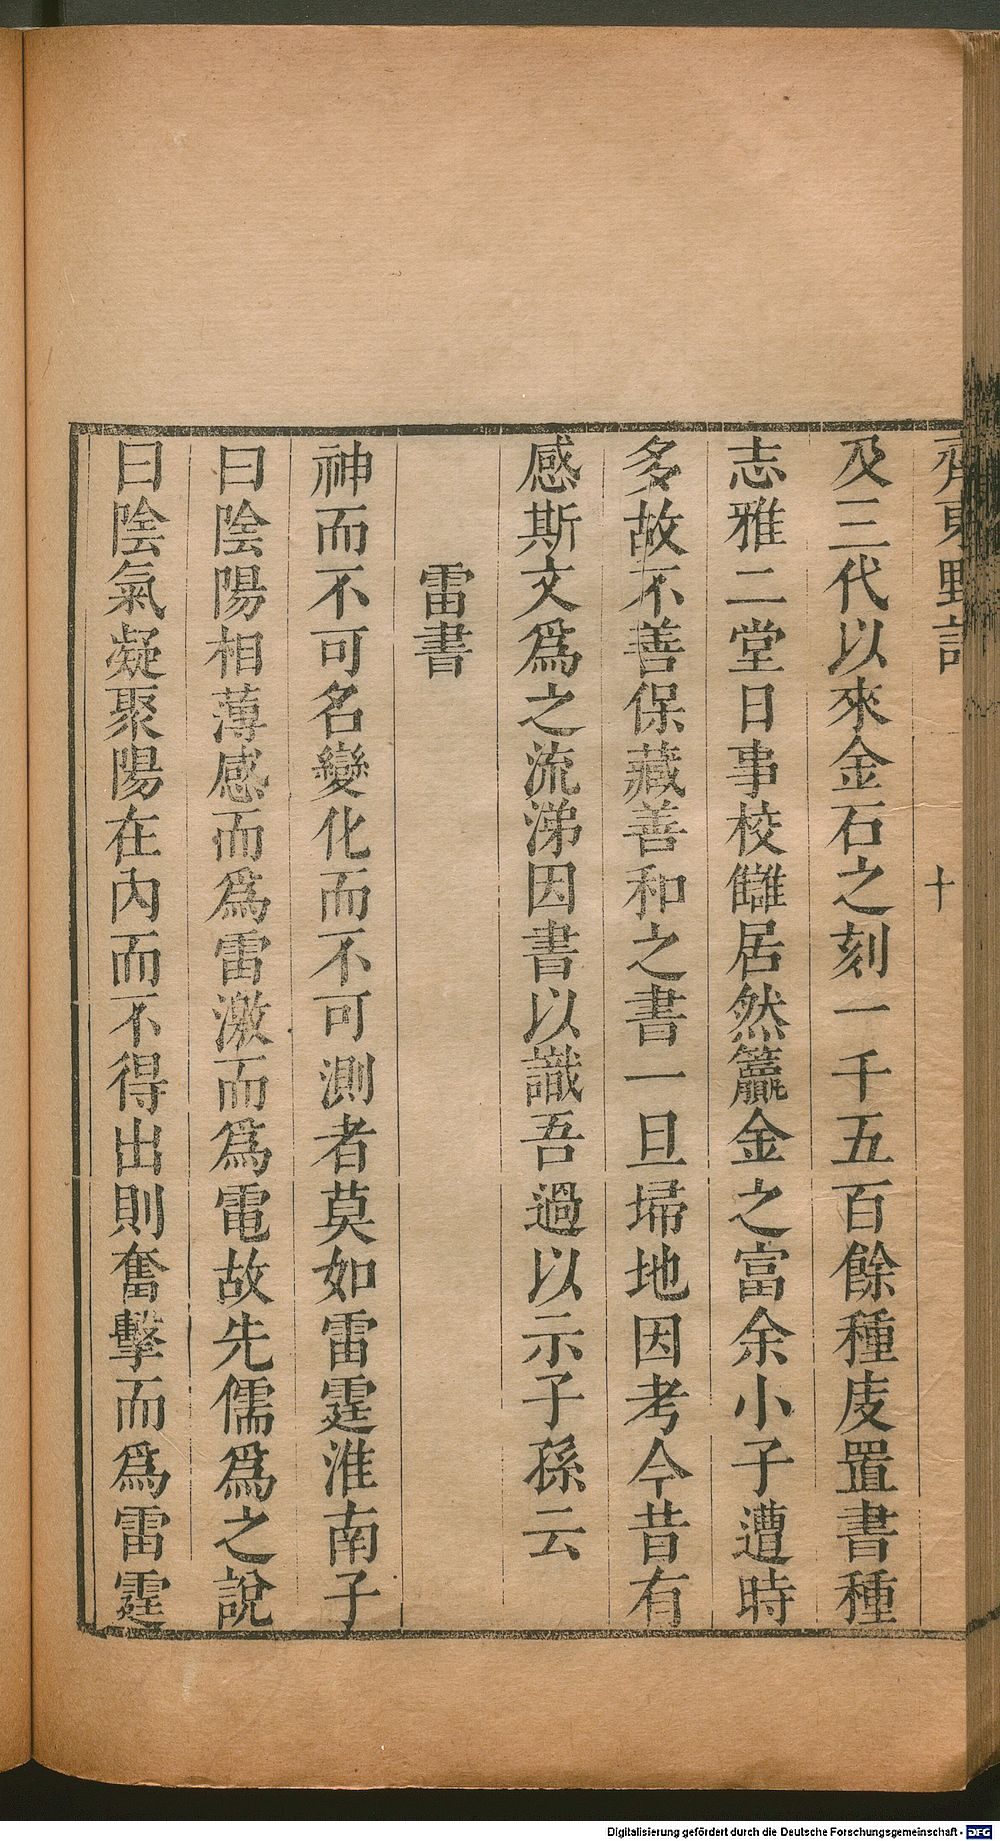 齊東野語
十
及三代以來金石之刻一千五百餘種庋置書種
志雅二堂日事校讎居然籯金之富余小子遭時
多故不善保藏善和之書一旦埽地因考今昔有
感斯文爲之流涕因書以識吾過以示子孫云
雷書
神而不可名變化而不可測者莫如雷霆淮南子
曰陰陽相薄感而爲雷激而爲電故先儒爲之說
曰陰氣凝聚陽在內而不得出則奮擊而爲雷霆
Digitalisierung gefördert durch die Deutsche Forschungsgemeinschaft - DFG